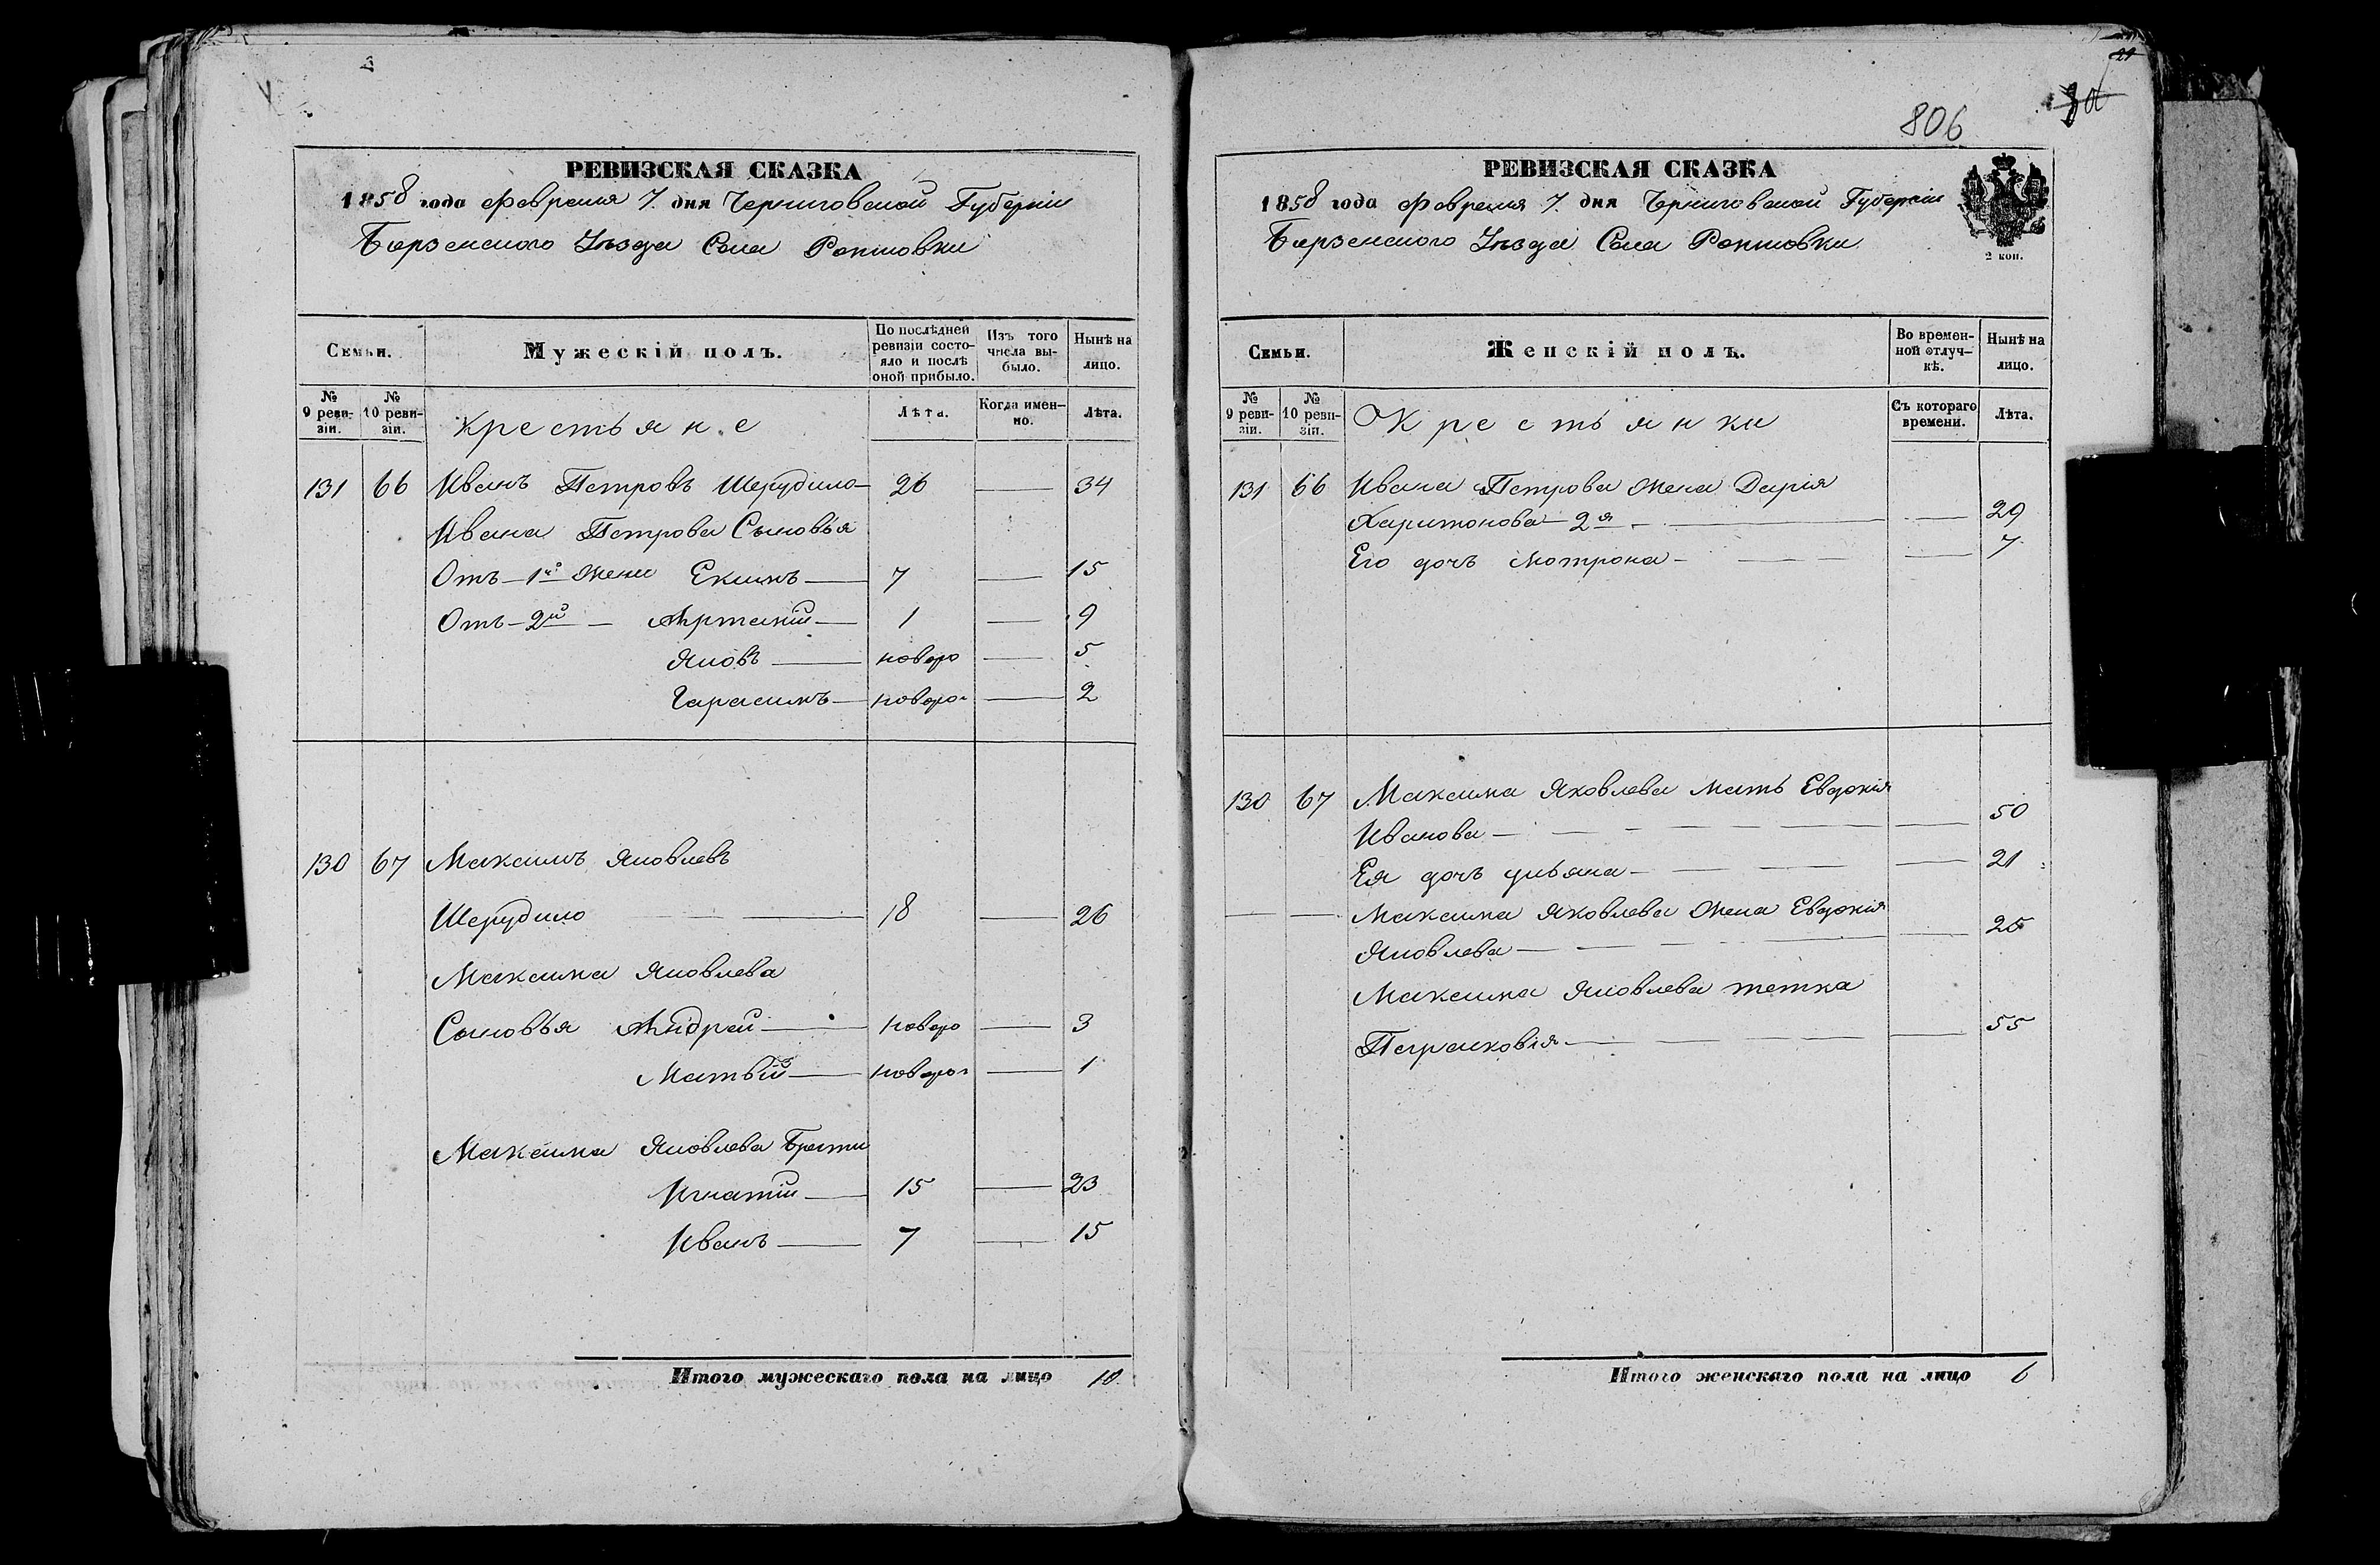 РЕВИЗСКАЯ СКАЗКА
1858 года Февраля 7. дня Черниговской Губерніи
Борзенского Уѣзда Села
Семьи.
Мужескій полъ.
По послѣдней ревизіи состояло и послѣ оной прибыло.
Изъ того числа выбыло.
Нынѣ на лицо.
№ 9 реви-зіи.
№ 10 реви-зіи.
Крестьяне
Лѣта.
Когда имен-но.
Лѣта.
131 66 Иванъ Петровъ Шерудило 26 — 34
Ивана Петрова Сыновья
Отъ 1й жени Екимъ — 7 — 15
Отъ 2й — Артемій — 1 — 9
Яковъ — новоро — 5
Гарасимъ — новоро — 2
130 67 Максимъ Яковлевъ
Шерудило — 18 — 26
Максима Яковлева
Сыновья Андрей — новоро — 3
Матвій — новоро — 1
Максима Яковлева Брати
Игнатій — 15 — 23
Иванъ — 7 — 15
Итого мужескаго пола на лицо 10
806
РЕВИЗСКАЯ СКАЗКА
1858 года Февраля 7. дня Черниговской Губерніи
Борзенского Уѣзда Села
2 коп.
Семьи.
Женскій полъ.
Во времен-ной отлуч-кѣ.
Нынѣ на лицо.
№ 9 реви-зіи.
№ 10 реви-зіи.
Крестьянки
Съ котораго времени.
Лѣта.
131 66 Ивана Петрова жена Дарія
Харитонова 2я — — 29
Его дочь Мотрона — — 7
130 67 Максима Яковлева мать Евдокія
Иванова — — 50
Ея дочь Ульяна — — 21
— — Максима Яковлева жена Евдокія
Яковлева — — 25
Максима Яковлева тетка
Парасковія — — 55
Итого женскаго пола на лицо 6